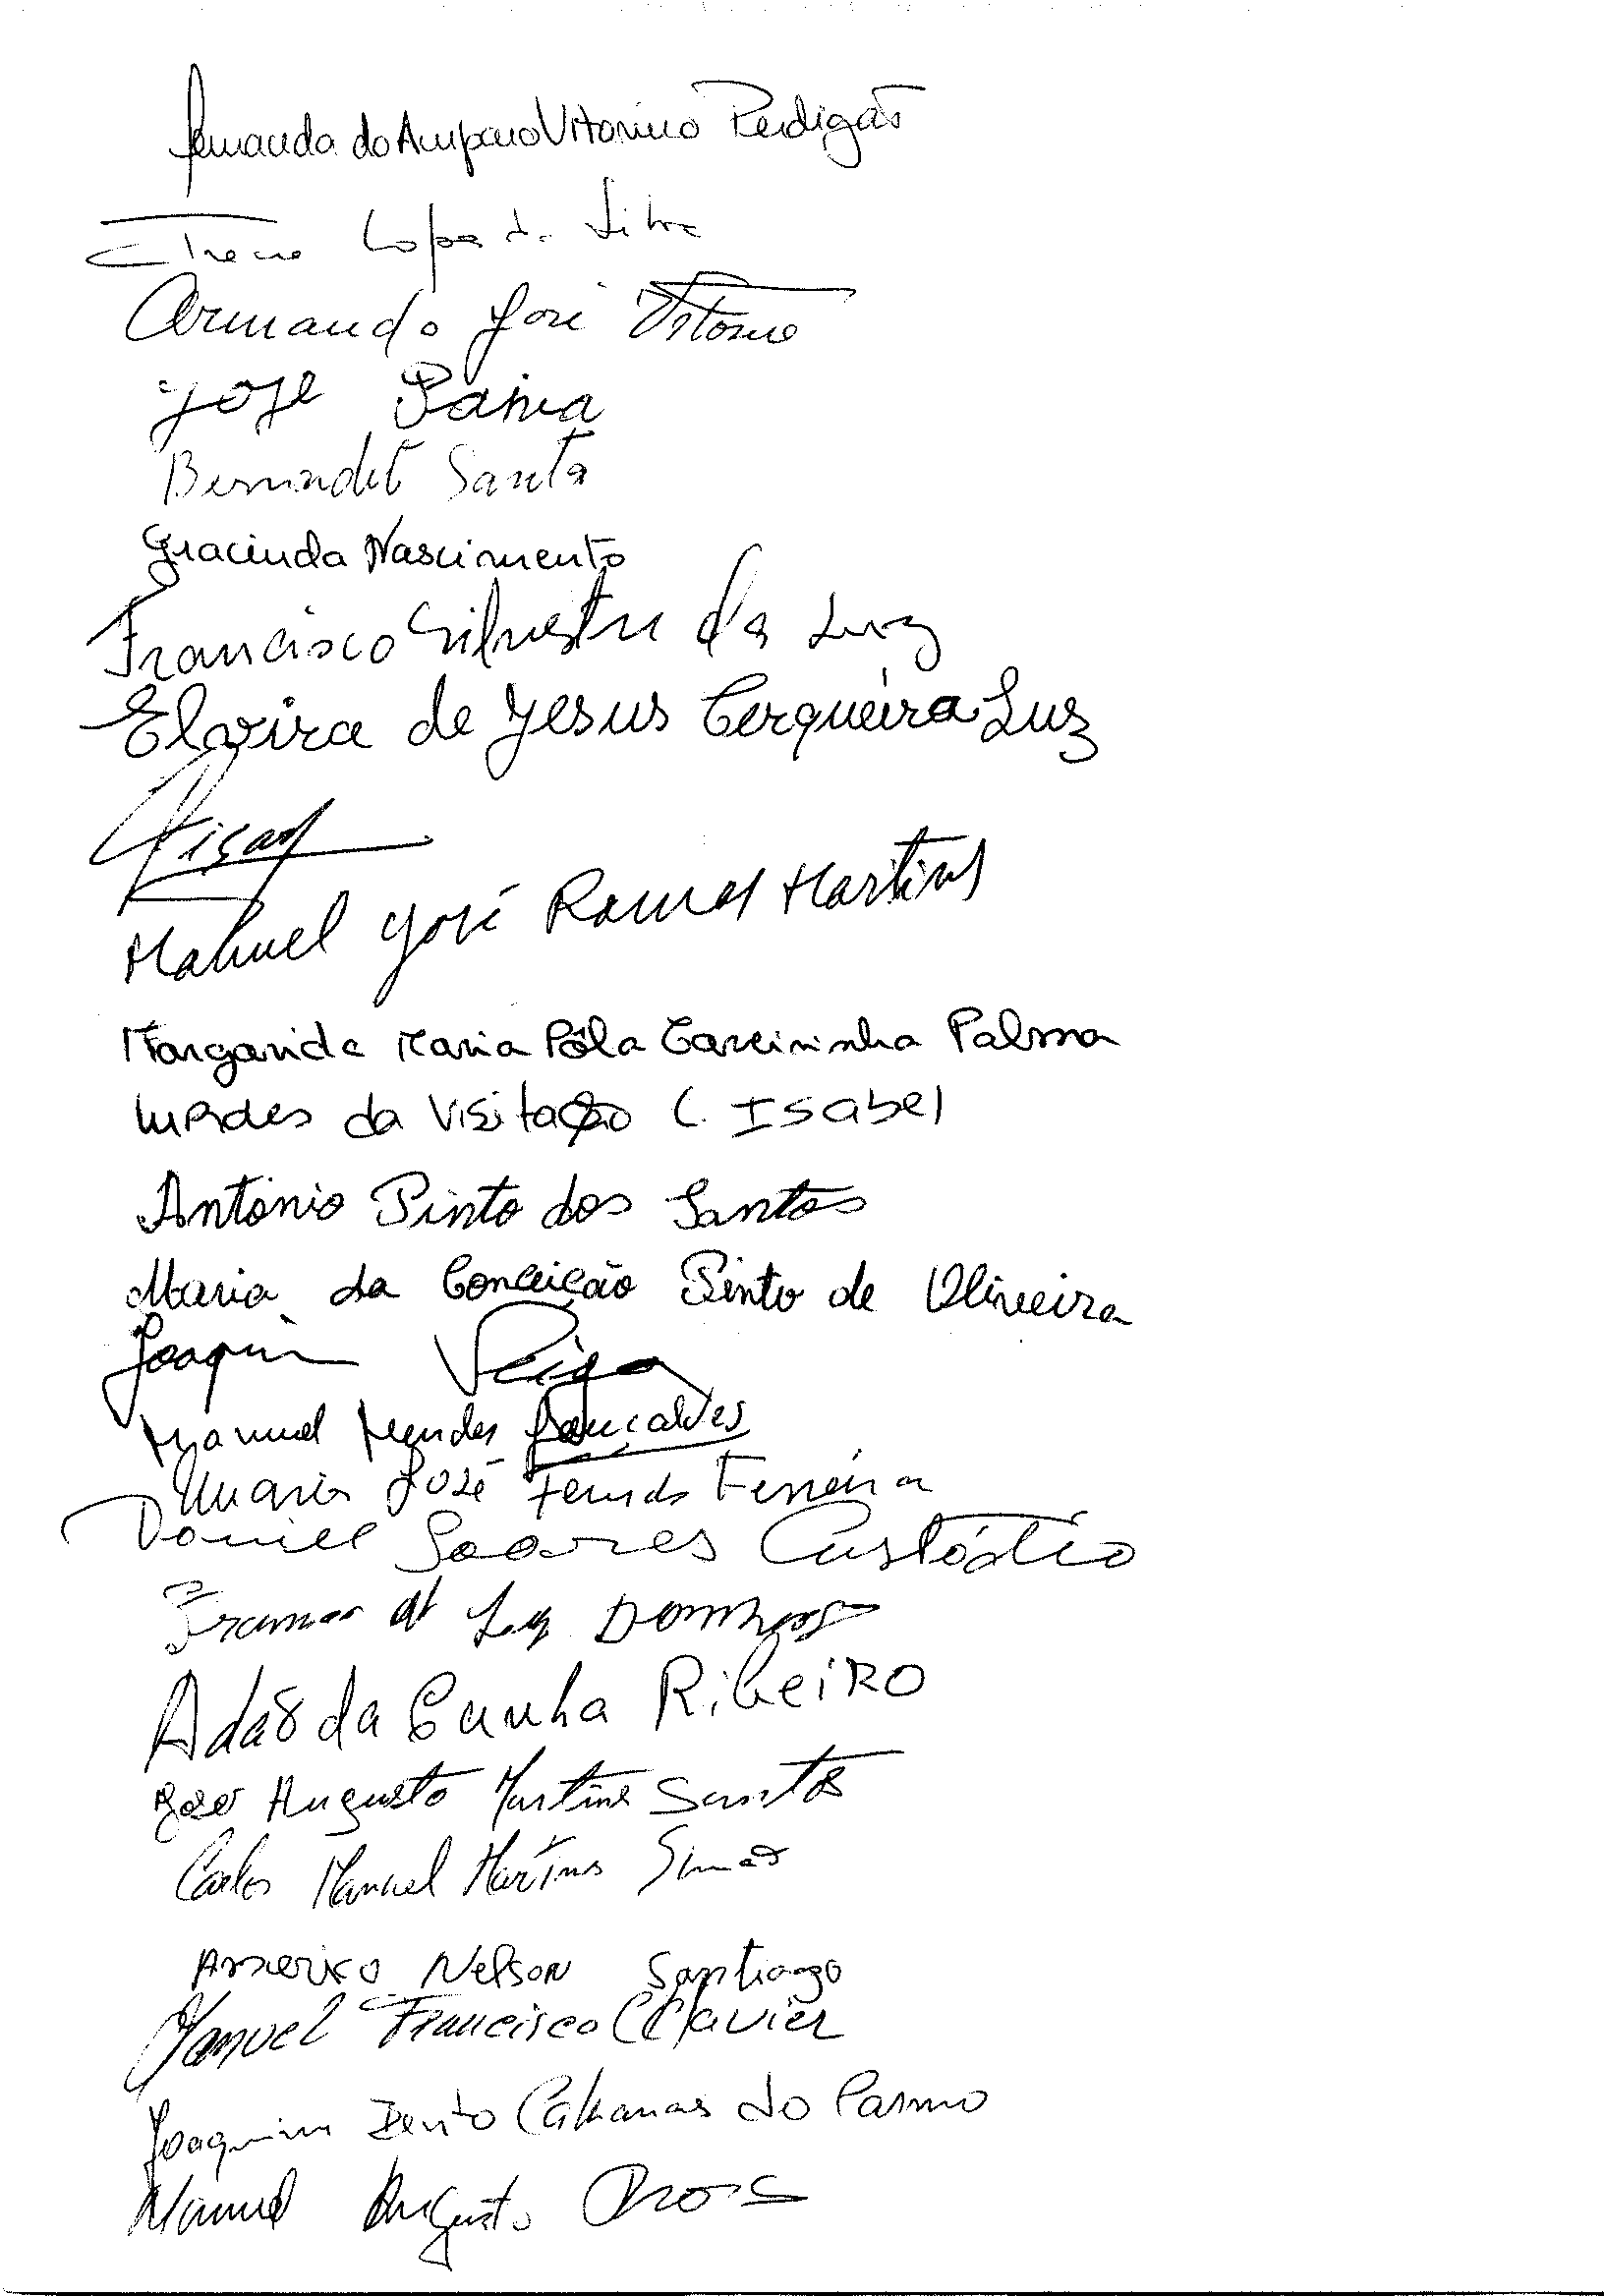 Fernanda do Amparo Vitorino Perdigão
Irene Lopes da Silva
Armando José Vitorino
José Paiva
Santa
Gracinda Nascimento
Francisco Silvestre da Luz
Elvira de Jesus Cerqueira Luz
Manuel José Ramos Martins
Margarida Maria Pôla Carreirinha Palma
da Visitação C. Isabel
António Pinto dos Santos
Maria da Conceição Pinto de Oliveira
Joaquim Veiga
Manuel Mendes Gonçalves
Maria José Ferreira
Daniel Soares Custódio
Adão da Cunha Ribeiro
Augusto Martins Santos
Carlos Manuel Martins Simão
Americo Nelson Santiago
Manuel Francisco Clavier
Joaquim Bento do Carmo
Manuel Augusto